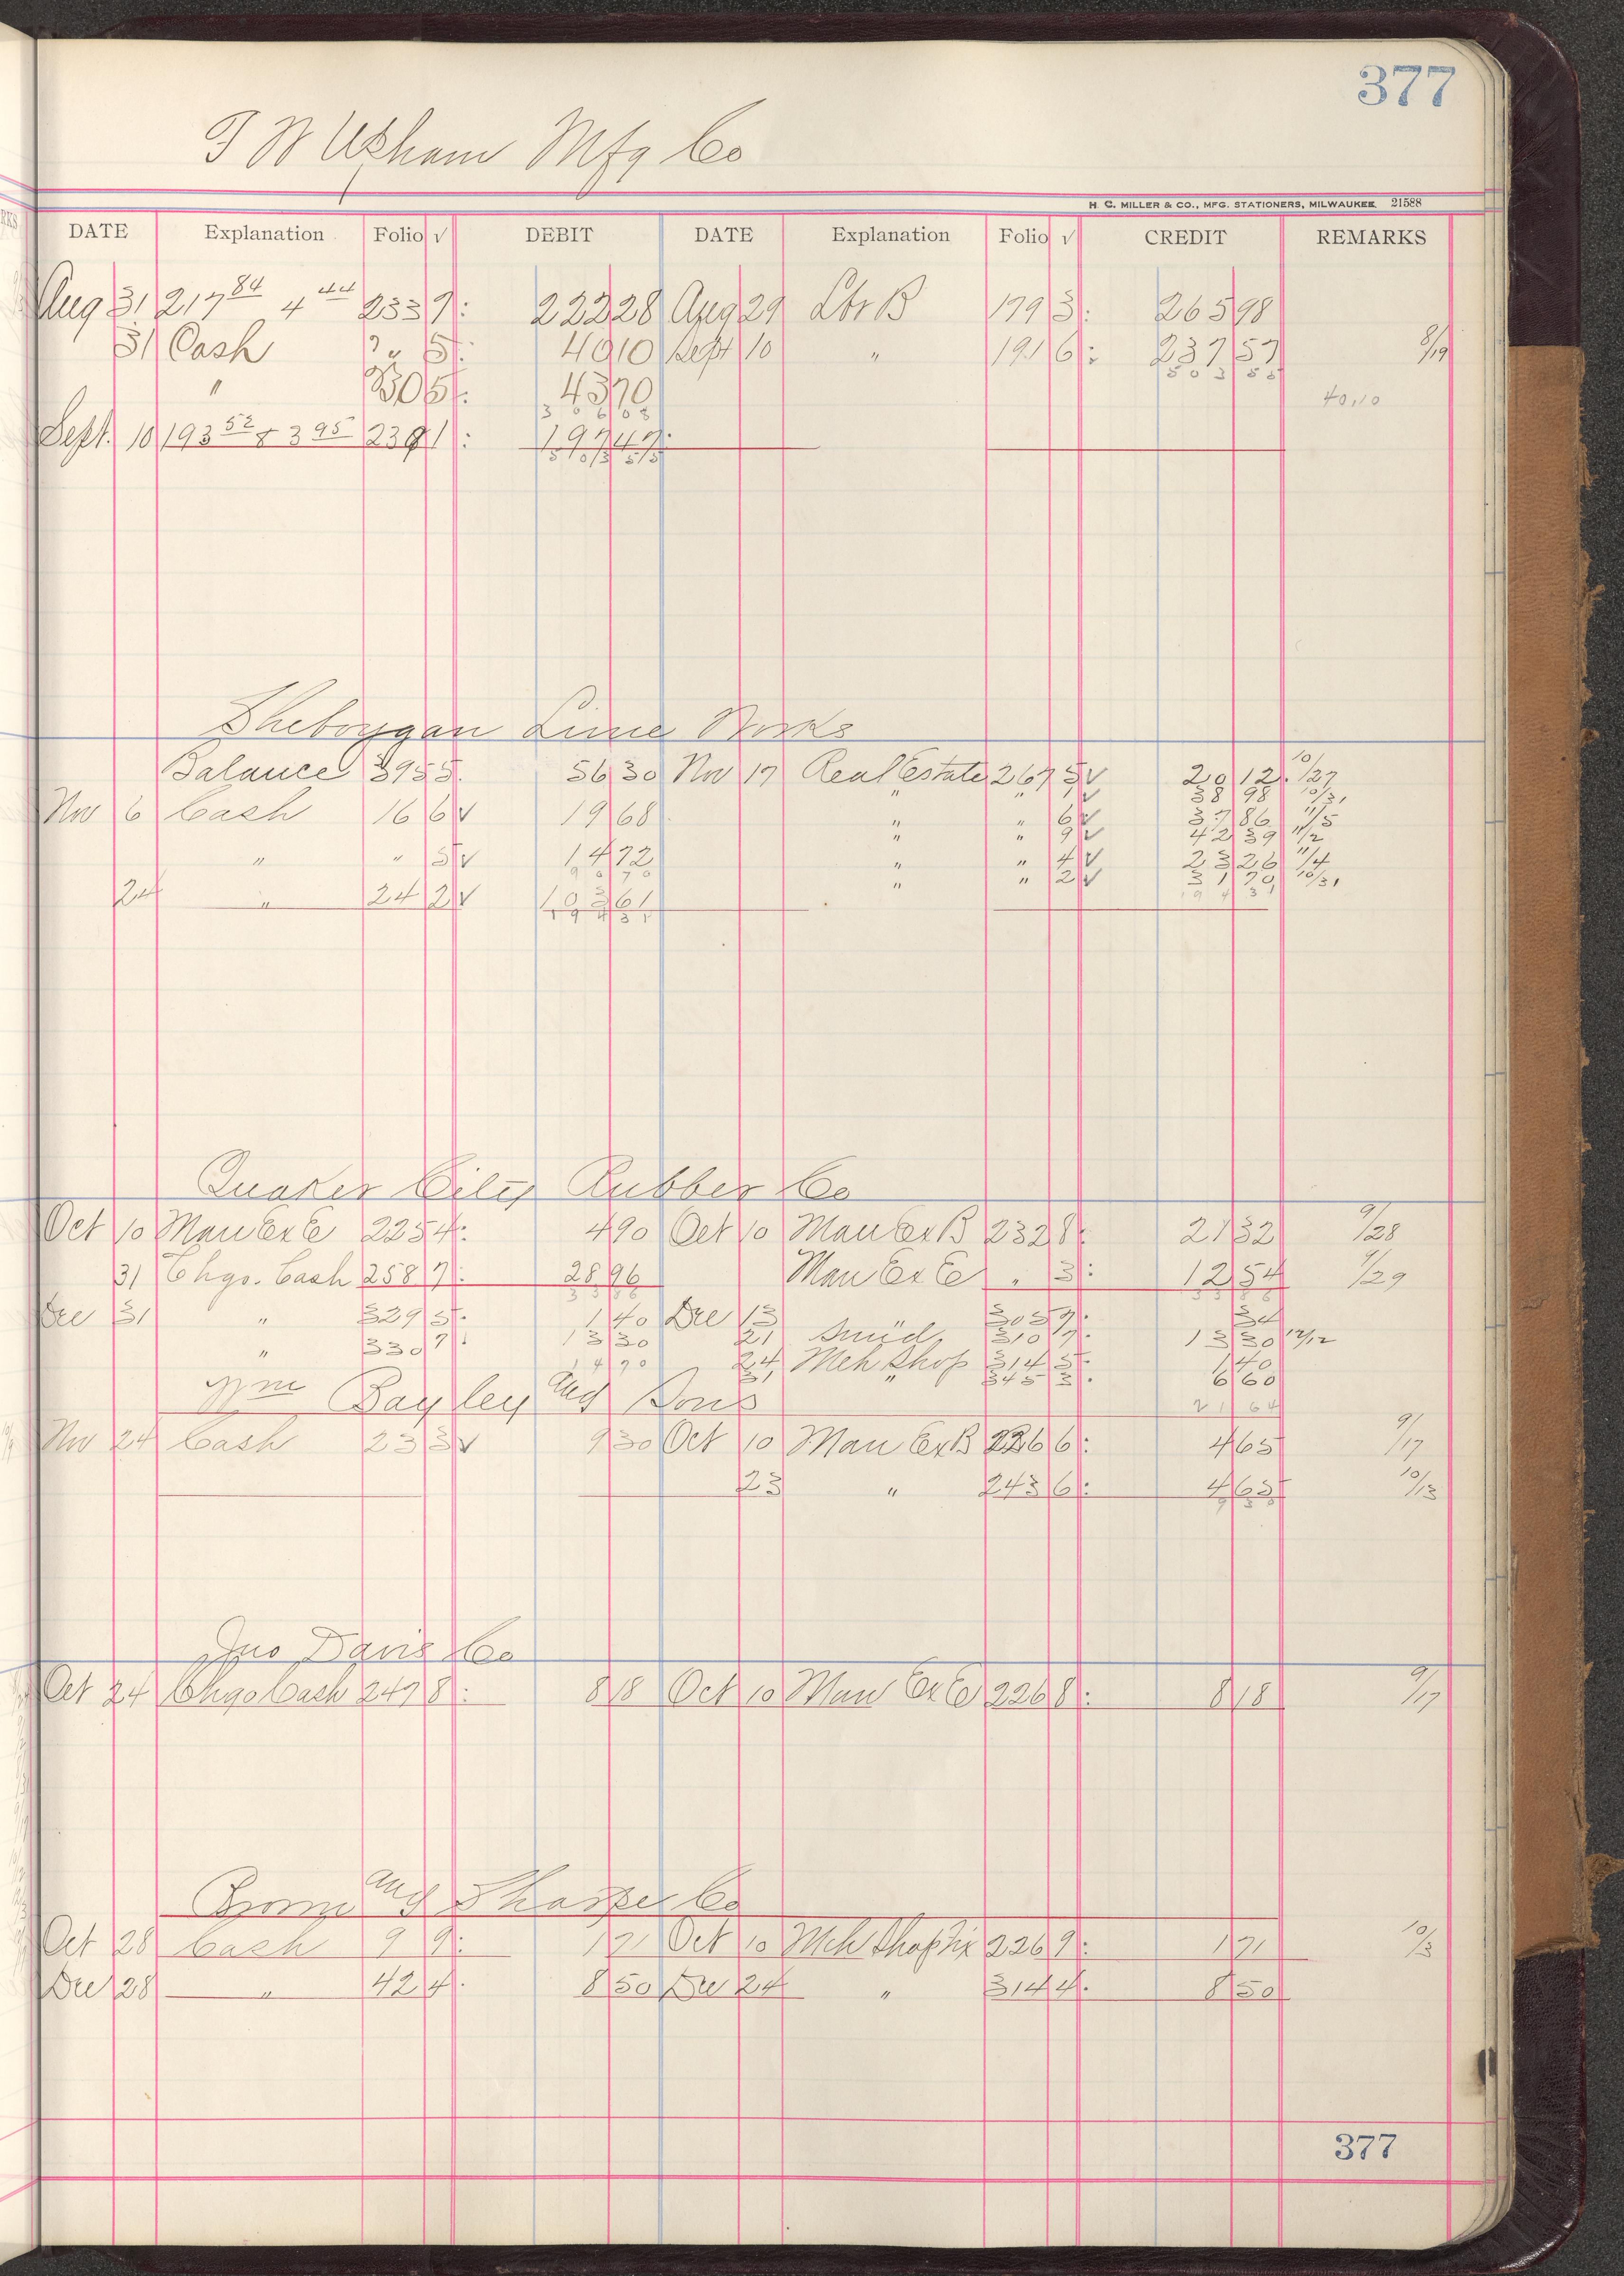 377
T W Upham Mfg Co
H. C. MILLER & CO., MFG. STATIONERS, MILWAUKEE 21588
DATE Explanation Folio √ DEBIT DATE Explanation Folio √ CREDIT REMARKS
Aug 31 217 84 4 44 233 7: 222 28 Aug 29 Lbr B 179 3: 265 98
31 Cash " 5: 40 10 Sept 10 " 191 6: 237 57 8/19
503 55
" 230 5: 43 70 40.10
306 08
Sept. 10 193 52 & 3 95 239 1: 197 47
503 55
Sheboygan Lime Works
Balance 395 5. 56 30 Nov 17 Real Estate 267 5 √ 20 12 10/27
" " 7 √ 38 98 10/31
Nov 6 Cash 16 6 √ 19 68 " " 6 √ 37 86 11/5
" " 9 √ 42 39 11/2
" " 5 √ 14 72 " " 4 √ 23 26 11/4
90 70 " " 2 √ 31 70 10/31
24 " 24 2 √ 103 61 194 31
194 31
Quaker City Rubber Co
Oct 10 Man Ex E 225 4: 4 90 Oct 10 Man Ex B 232 8: 21 32 9/28
31 Chgo. Cash 258 7: 28 96 Man Ex E " 3: 12 54 9/29
33 86 33 86
Dec 31 " 329 5: 1 40 Dec 13 305 7: 34
" 330 7: 13 30 21 Smid 310 7: 13 30 12/12
14 70 24 Mch Shop 314 5: 1 40
31 " 345 3: 6 60
21 64
Wm Bayley and Sons
Nov 24 Cash 23 3 √ 9 30 Oct 10 Man Ex B 226 6: 4 65 9/17
23 " 243 6: 4 65 10/13
9 30
Jno Davis Co
Oct 24 Chgo Cash 247 8: 8 18 Oct 10 Man Ex E 226 8: 8 18 9/17
Brown and Sharpe Co
Oct 28 Cash 9 9: 1 71 Oct 10 Mch Shop Fix 226 9: 1 71 10/3
Dec 28 " 42 4: 8 50 Dec 24 " 314 4: 8 50
377